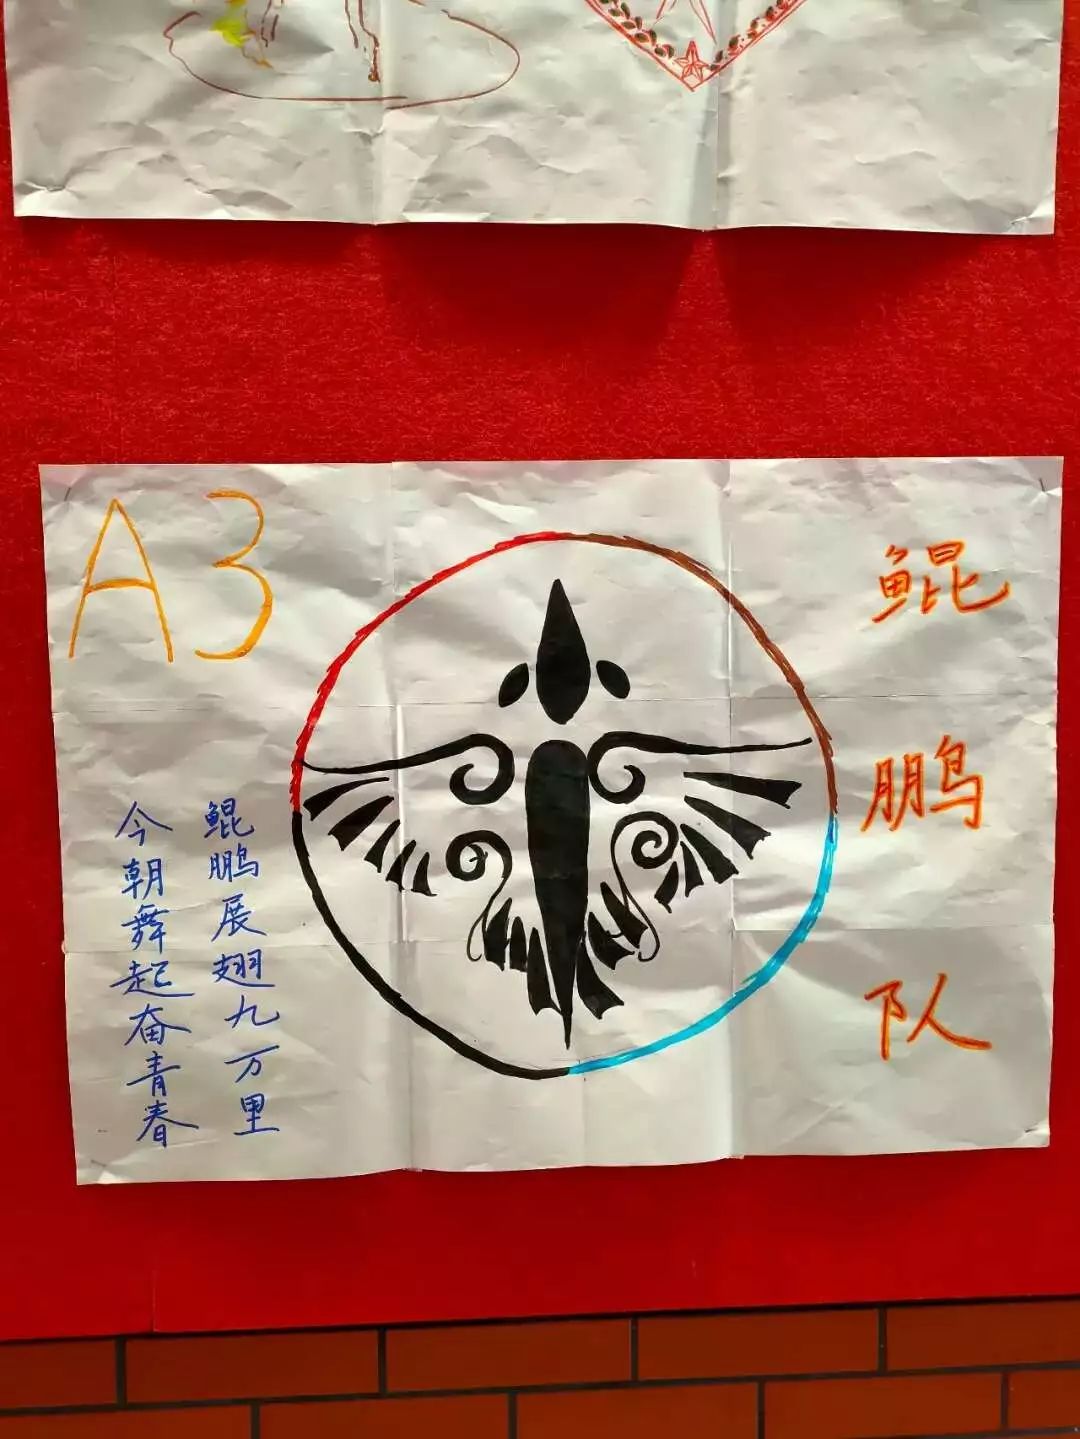 A3
鲲鹏队
鲲鹏展翅九万里
今朝舞起奋青春